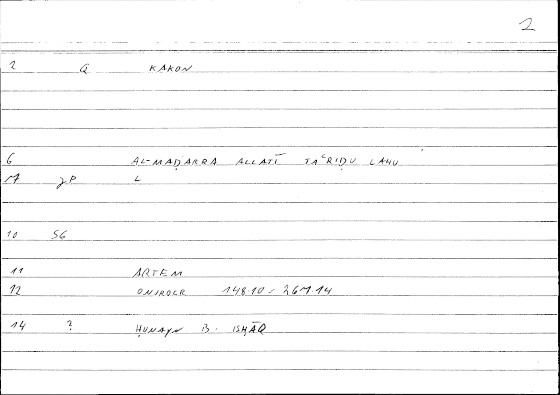 2
2 Q KAKON
6 AL-MAḌARRA ALLATĪ TAʿRIḌU LAHU
7 gP L
10 SG
11 ARTEM
12 ONIROCR 148.10 - 267.14
14 ? ḤUNAYN B. ISḤĀQ